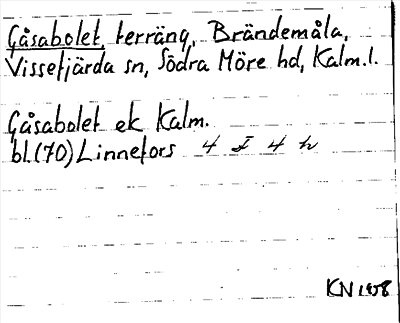 Gåsabolet, terräng, Brändemåla,
Vissefjärda sn, Södra Möre hd, Kalm.l.
Gåsabolet ek Kalm.
bl.(70) Linnefors 4 I 4 h
KN 1958